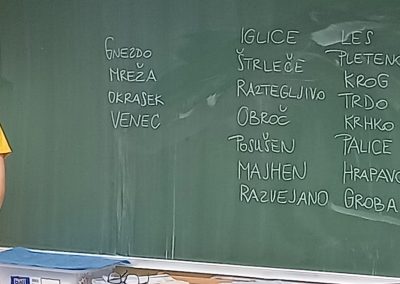 GNEZDO
MREŽA
OKRASEK
VENEC
IGLICE
ŠTRLEČE
RAZTEGLJIVO
OBROČ
POSUŠEN
MAJHEN
RAZVEJANO
LES
PLETENO
KROG
TRDO
KRHKO
PALICE
HRAPAVO
GROBA